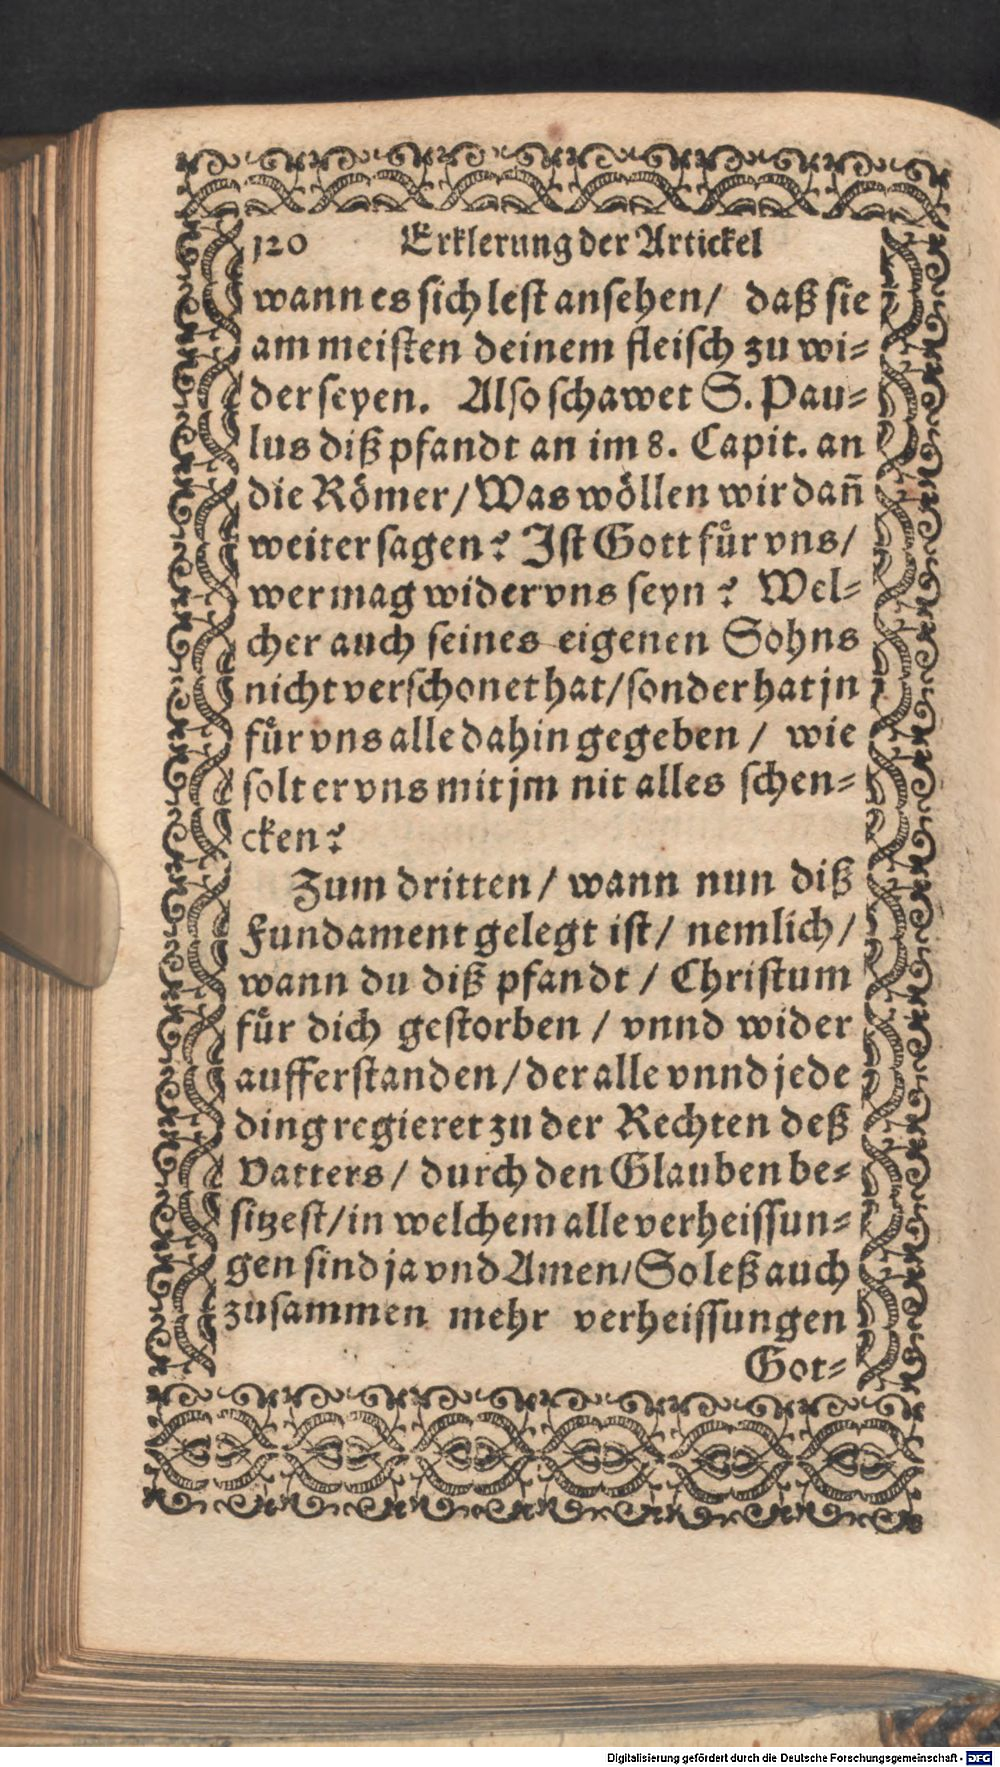 120 Erklerung der Artickel
wann es sich lest ansehen/ daß sie
am meisten deinem fleisch zu wi-
der seyen. Also schawet S. Pau-
lus diß pfandt an im 8. Capit. an
die Römer/ Was wöllen wir dañ
weiter sagen? Ist Gott fuͤr vns/
wer mag wider vns seyn? Wel-
cher auch seines eigenen Sohns
nicht verschonet hat/ sonder hat jn
fuͤr vns alle dahin gegeben/ wie
solt er vns mit jm nit alles schen-
cken?
Zum dritten/ wann nun diß
Fundament gelegt ist/ nemlich/
wann du diß pfandt/ Christum
fuͤr dich gestorben/ vnnd wider
aufferstanden/ der alle vnnd jede
ding regieret zu der Rechten deß
Vatters/ durch den Glauben be-
sitzest/ in welchem alle verheissun-
gen sind ja vnd Amen/ So leß auch
zusammen mehr verheissungen
Got-
Digitalisierung gefördert durch die Deutsche Forschungsgemeinschaft - DFG